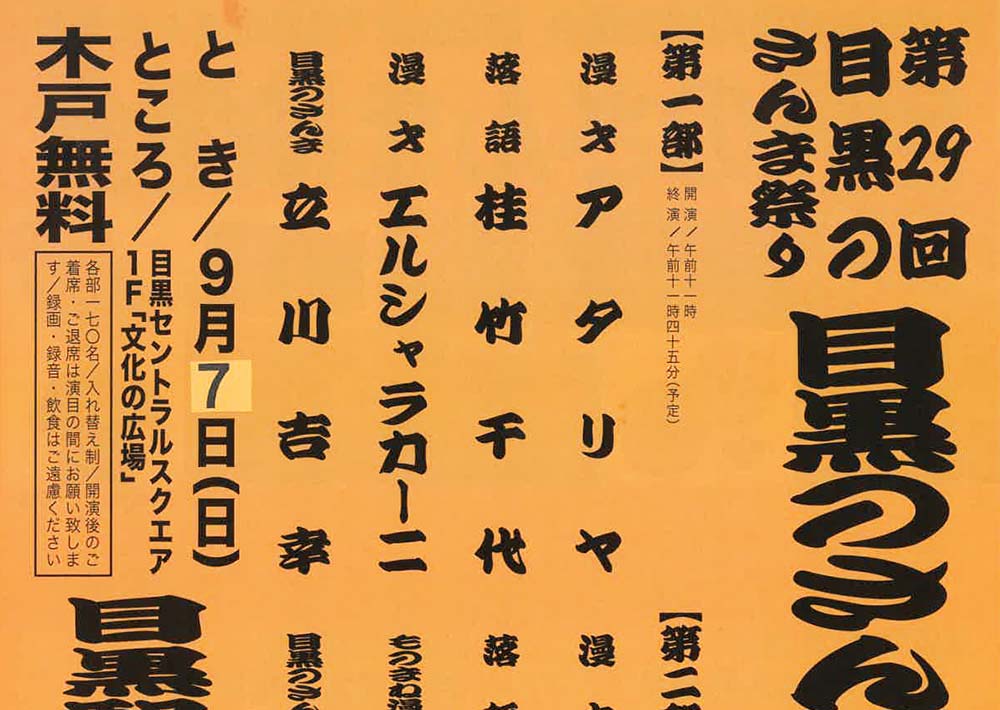 第29回
目黒の
さんま祭り
目黒のさん
【第一部】
開演／午前十一時
終演／午前十一時四十五分(予定)
漫才 アタリヤ
落語 桂竹千代
漫才 エルシャラカーニ
目黒のさんま 立川吉幸
【第二部
漫才
落
ものまね漫
目黒のさん
とき／9月7日(日)
ところ／目黒セントラルスクエア
1F「文化の広場」
木戸無料
各部一七〇名／入れ替え制／開演後のご
着席・ご退席は演目の間にお願い致しま
す／録画・録音・飲食はご遠慮ください
目黒駅